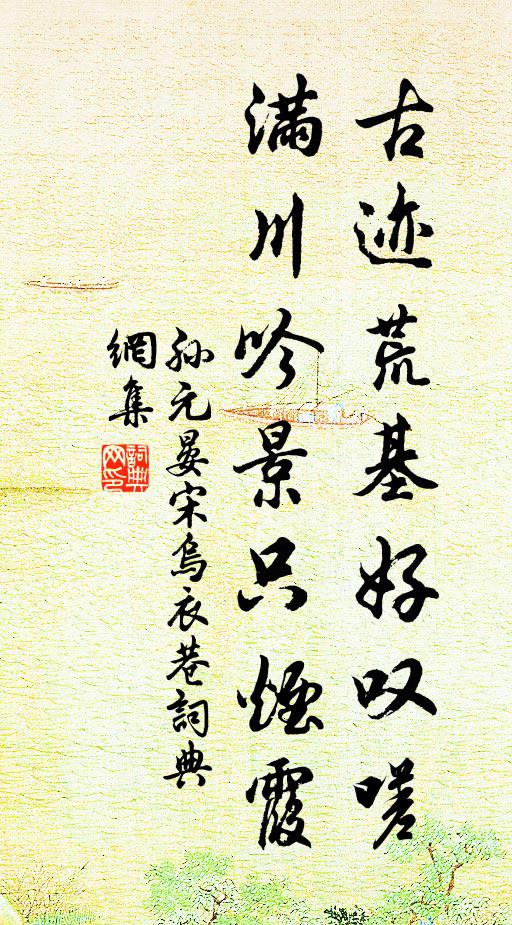 古迹荒基好叹嗟
满川吟景只烟霞
孙元晏宋乌衣巷词典
網集
詞典网印